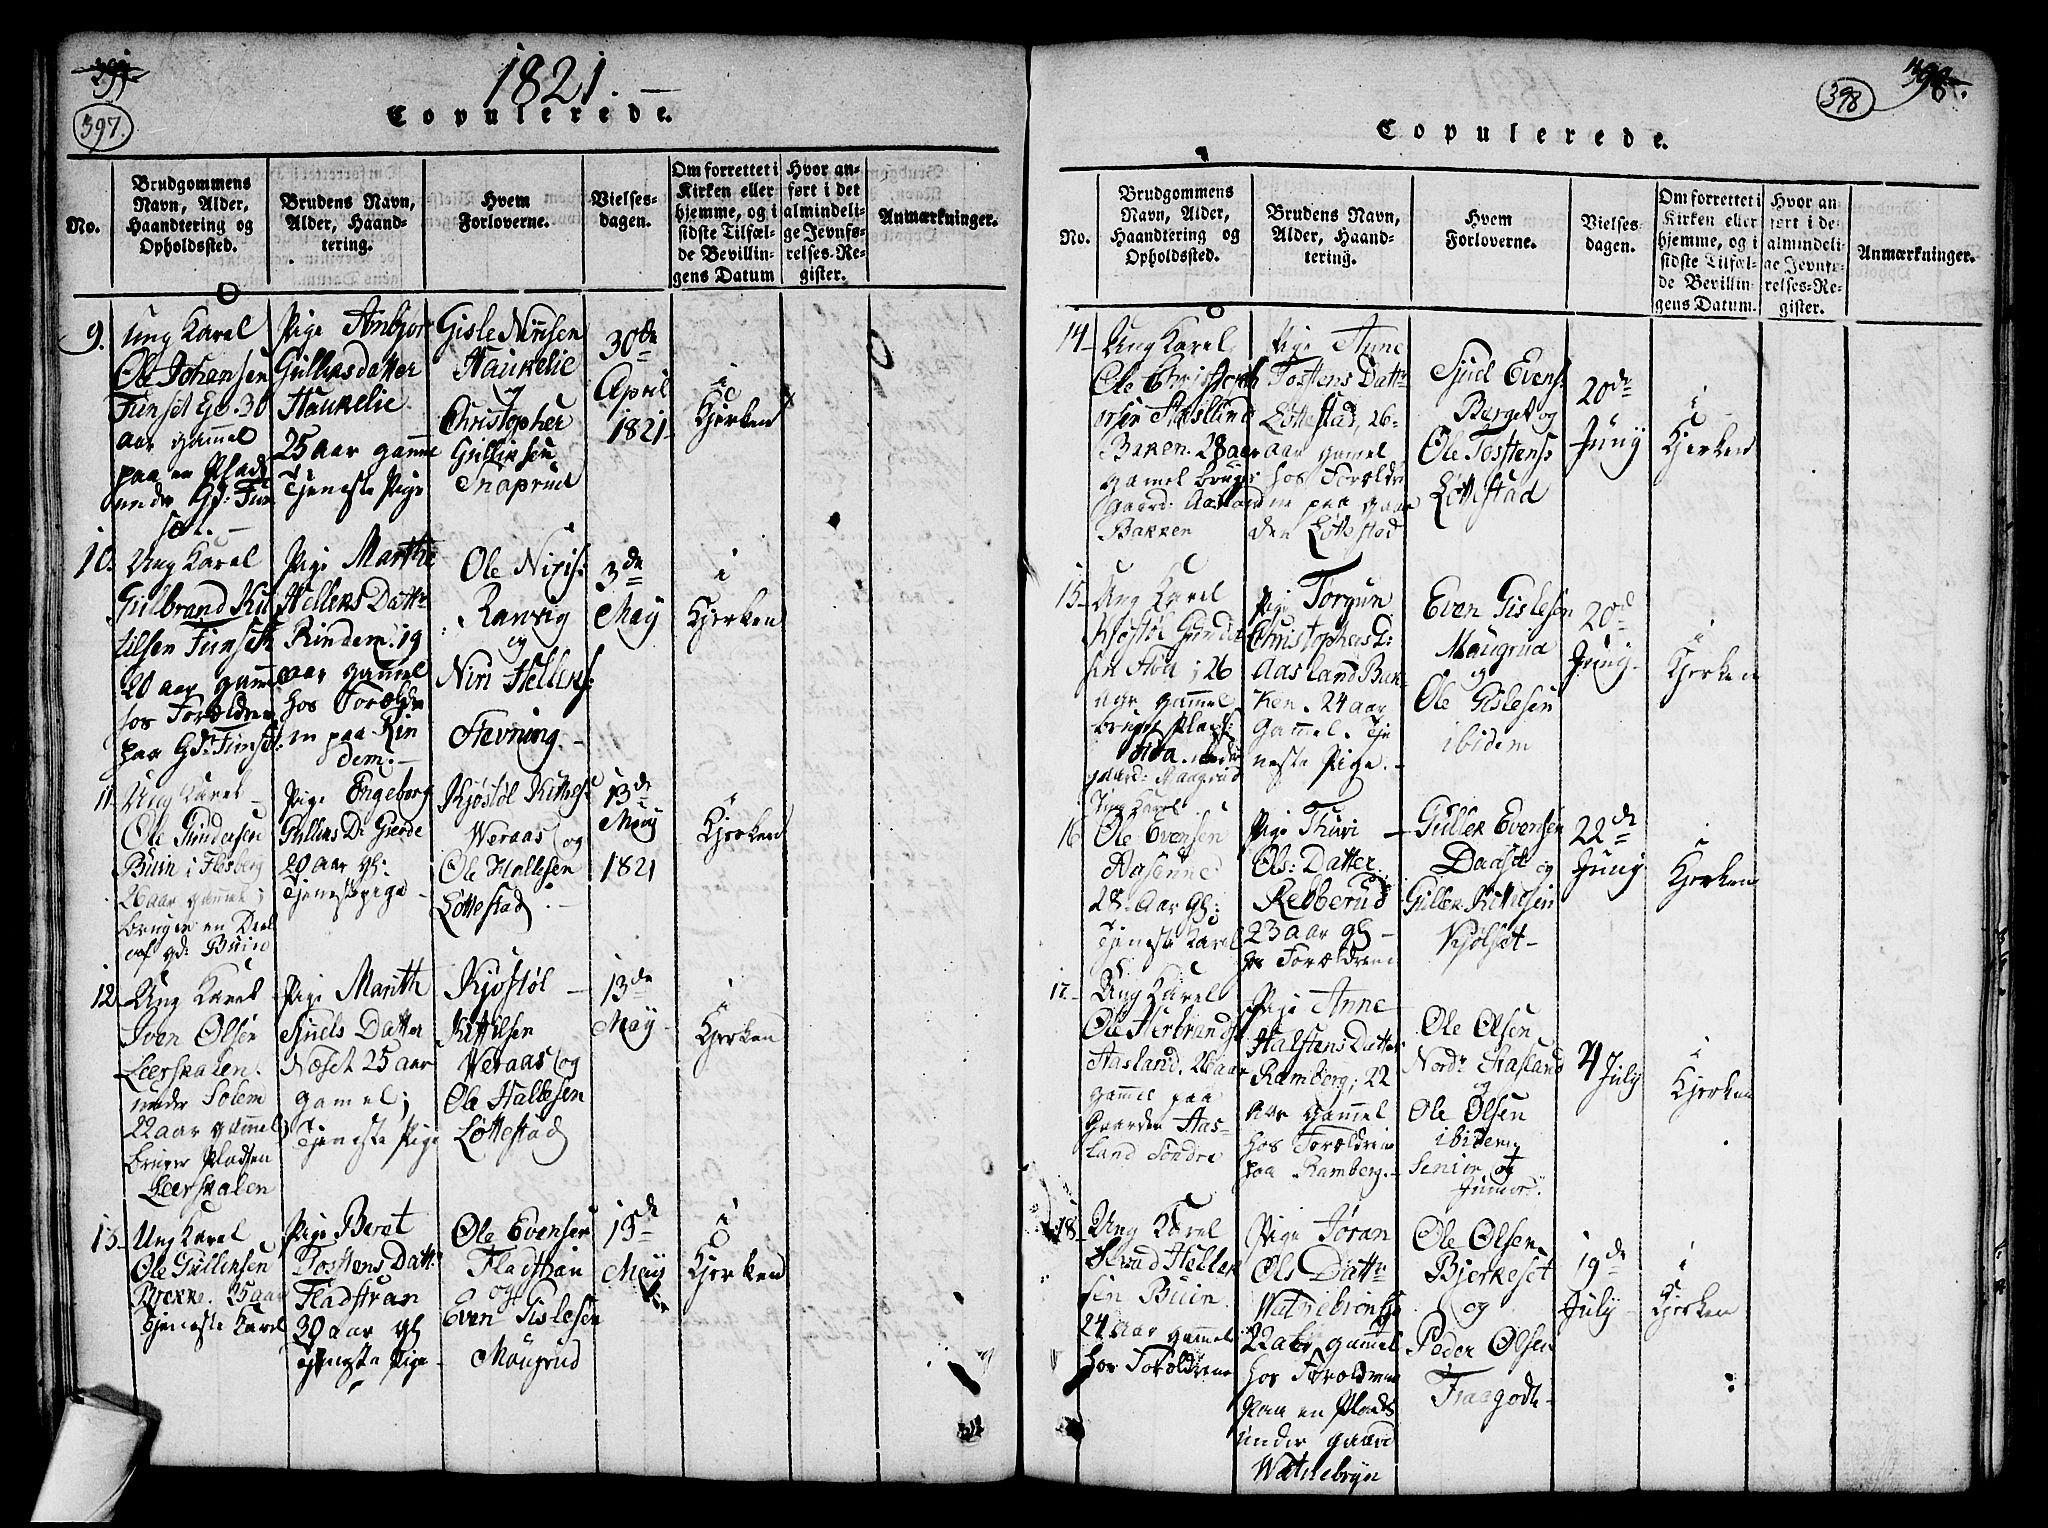 397.
1821.
Copulerede.
No.
Brudgommens Navn, Alder, Haandtering og Opholdssted.
Brudens Navn, Alder, Haandtering.
Hvem Forloverne.
Vielsesdagen.
Om forrettet i Kirken eller hjemme, og i sidste Tilfælde Bevillingens Datum
Hvor anført i det almindelige Jevnførelses-Register.
Anmærkninger.
9.
Ung Karel
Ole Johansen
30
aar gammel
paa en Plads
under Gd: Fun
sæt. —
Pige Anbjor
Gullersdatter
Haukelie
25 aar gamme
Tjeneste Pige
Gisle Nirisen
Haukelie
og
Christopher
Gulliksen
30de
April
1821
i
Kjerken
10.
Ung Karel
Gulbrand Kit
tilsen Funseth
20 aar gamme
hos Forældrene
paa Gd: Funset:
Pige Marthe
Hellers Dattr
Rindem. 19
aar gammel
hos Forældre
ne paa Rin
dem. —
Ole Niris:
Ranvig
og
Niri Hellers:
Stevning. –
3de
May
i
Kjerken
11.
Ung Karel
Ole Gundersen
Buin i Flesberg
26 aar gamme;
bruger en Deel
af gd: Buin
Pige Engeborg
Gullers D: Gierde
20 aar gl:
Tjenestepige –
Kjøstøl Kittels:
Weraas og
Ole Hallesen
Løttestad
13de
May
1821
i
Kjerken
12.
Ung Karel
Iven Olsen
Leerskalen.
under Solem
22 aar gammel
bruger Pladsen
Leerskalen
Pige Marith
Sjuels Datter
Næset 25 aar
gamel;
Tjeneste Pige
Kjøstøl –
Kittilsen
Weraas og
Ole Hallesen
Løttestad
13de
May
i
Kjerken
13.
Ung Karel
Ole Gullensen
Bække. 25 aar
Tjeneste Karel
Pige Beret
Tostens Dattr
Fladstran
30 aar gl
tjeneste Pige
Ole Evensen
Fladthan
og
Even Gislesen
Maugrud
13de
May
i
Kjerken
398
Copulerede.
No.
Brudgommens Navn, Alder, Haandtering og Opholdssted.
Brudens Navn, Alder, Haandtering.
Hvem Forloverne.
Vielsesdagen.
Om forrettet i Kirken eller hjemme, og i sidste Tilfælde Bevillingens Datum.
Hvor anført i det almindelige Jevnførelses-Register.
Anmærkninger.
14
Ung Karel
Ole Christoph
ersen Aasland
Baken. 28 aar
gamel bruger
gaard: Aasland
Bakken
Pige Anne
Tostens Dattr
Løttestad, 26
aar gamel
hos Forældre
ne paa gaar
den Løttestad
Sjuel Evens:
Berget og
Ole Tostens:
Løttestad
20de
Juny
i
Kjerken
15
Ung Karel
26
aar gammel
Pige Torgun
Christophers D:
Aasland Bak
ken. 24 aar
gammel. Tje
neste Pige. –
Even Gislesen
Maugrud
og
Ole Gislesen
ibidem
20de
Juny.
i
Kjerken
16
Ung Karel
Ole Evensen
28. Aar gl:
Tjeneste Karel
Pige Thuri –
Ols: Datter
Rebberud
23 aar gl –
hos Forældrene
Guller Evensen
Daaset og
Guller Kittelsen
Kjølset –
22de
Juny
i
Kjerken
17.
Ung Karel
Ole Herbrands:
Aasland. 26 aar
gammel paa
Gaarden Aas-
land Søndre
Pige Anne
Halstens Datter
Ramberg; 22
Aar gammel
hos Forældrene
paa Ramberg. –
Ole Olsen
Nordr Aasland
og
Ole Olsen
ibidem
Senior og
Junior.
4
July
i
Kjerken
18
Ung Karel
Heller
sen Buin.
24 Aar gammel
hos Forældrene
Pige Jøran
Ols Dattr
Watnebrønd
22 aar gammel
hos Forældrene
paa en Plads
under gaard
Watnebryn
Ole Olsen
Bjerkeset
og
Peder Olsen
Fraagodt –
19de
July
i
Kjerken